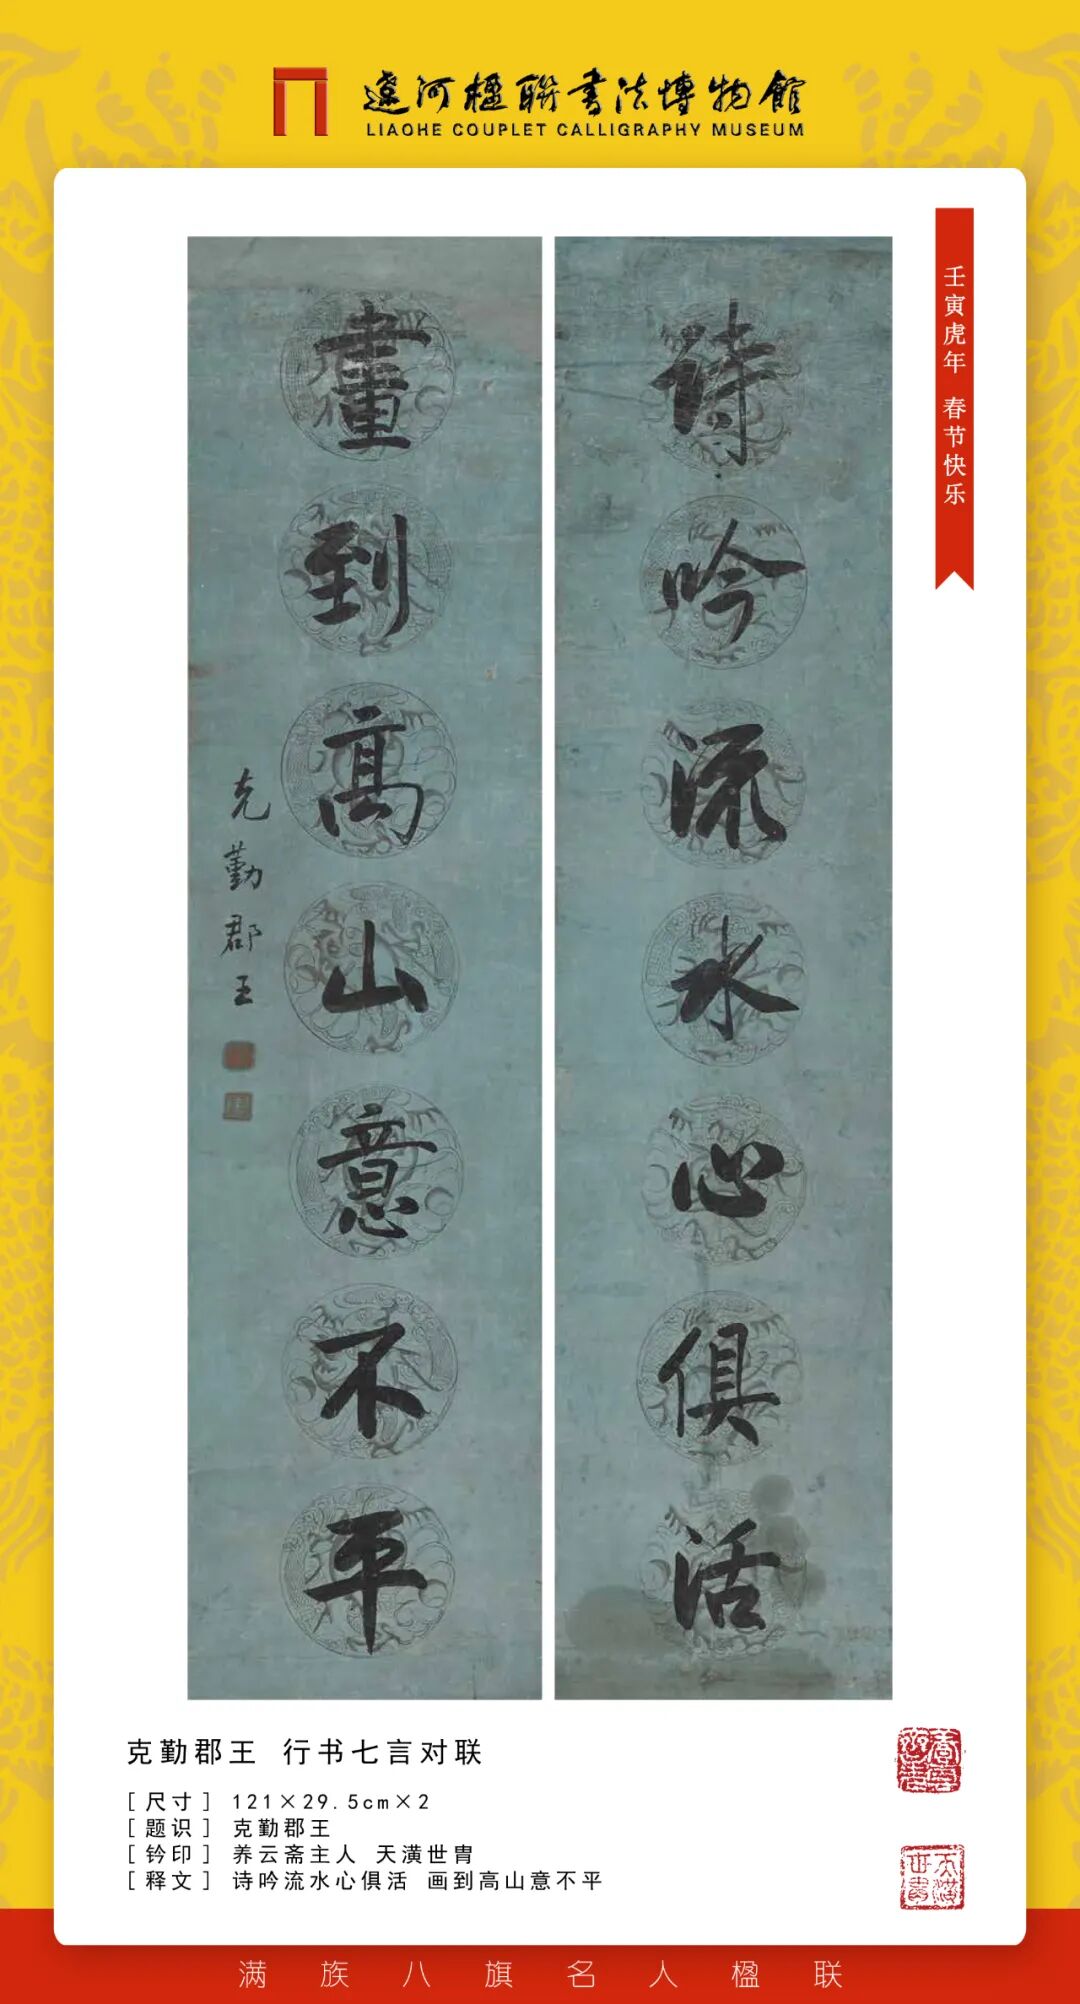 遼河楹聯書法博物館
LIAOHE COUPLET CALLIGRAPHY MUSEUM
壬寅虎年 春节快乐
诗吟流水心俱活
畫到高山意不平
克勤郡王
克勤郡王 行书七言对联
[尺寸] 121×29.5cm×2
[题识] 克勤郡王
[钤印] 养云斋主人 天潢世胄
[释文] 诗吟流水心俱活 画到高山意不平
天潢世胄
满族八旗名人楹联